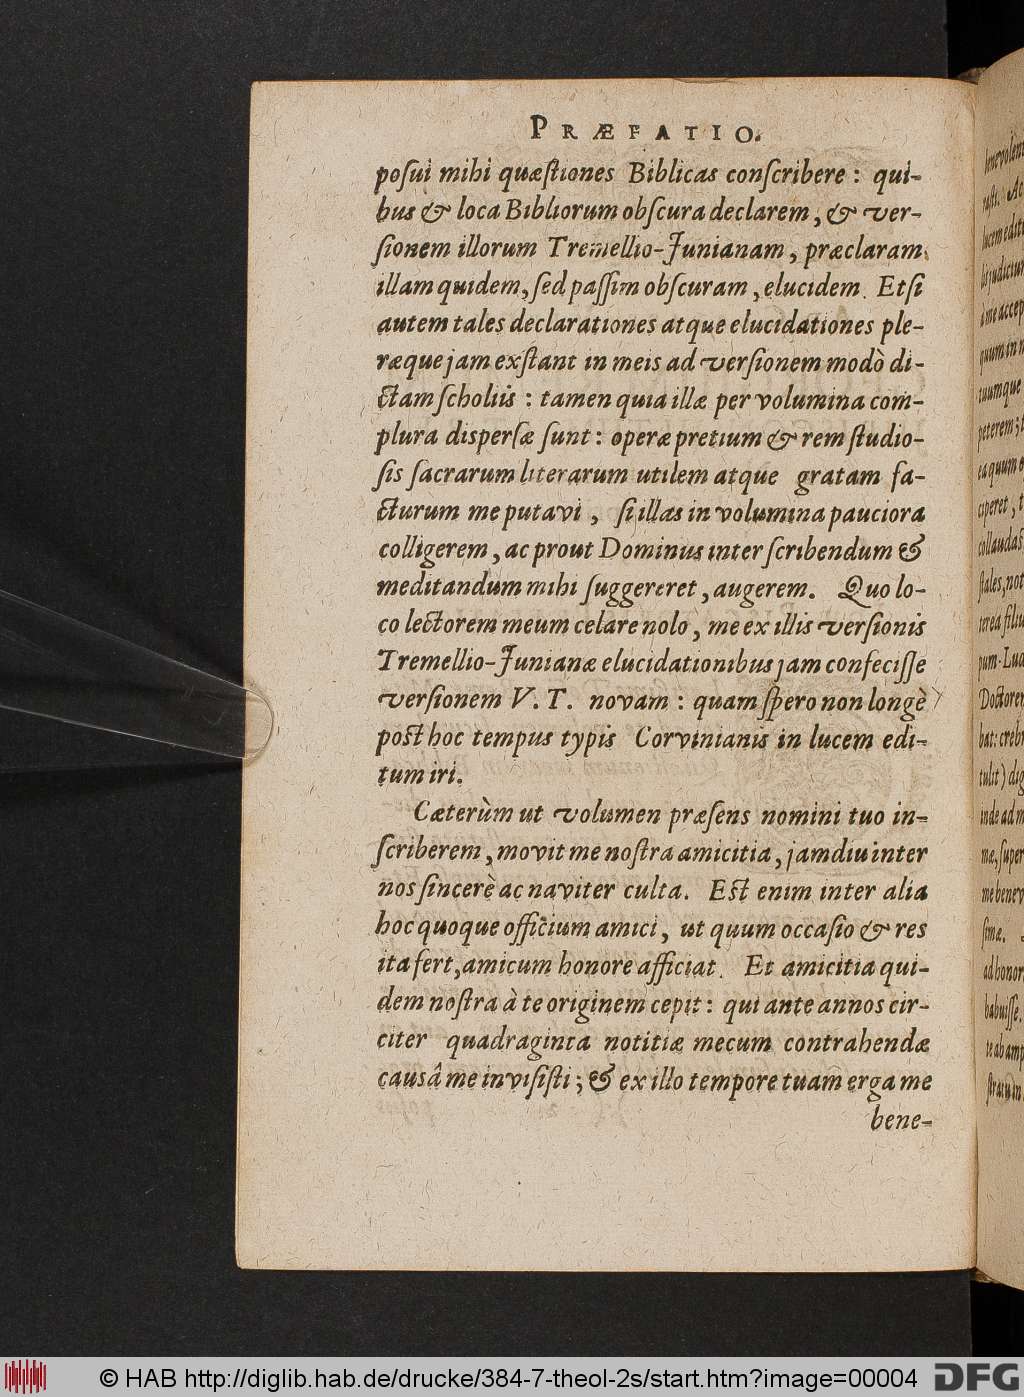 PRÆFATIO.
poſui mihi quæſtiones Biblicas conſcribere : qui-
bus & loca Bibliorum obſcura declarem, & ver-
ſionem illorum Tremellio-Junianam, præclaram
illam quidem, ſed paſſim obſcuram, elucidem. Etſi
autem tales declarationes atque elucidationes ple-
ræque jam exſtant in meis ad verſionem modò di-
ctam ſcholiis : tamen quia illæ per volumina com-
plura disperſæ ſunt : operæ pretium & rem ſtudio-
ſis ſacrarum literarum utilem atque gratam fa-
cturum me putavi , ſi illas in volumina pauciora
colligerem, ac prout Dominus inter ſcribendum &
meditandum mihi ſuggereret, augerem. Quo lo-
co lectorem meum celare nolo, me ex illis verſionis
Tremellio-Junianæ elucidationibus jam confeciſſe
verſionem V. T. novam : quam ſpero non longè
poſt hoc tempus typis Corvinianis in lucem edi-
tum iri.
Cæterùm ut volumen præſens nomini tuo in-
ſcriberem, movit me noſtra amicitia, jamdiu inter
nos ſincerè ac naviter culta. Eſt enim inter alia
hoc quoque officium amici, ut quum occaſio & res
ita fert, amicum honore afficiat. Et amicitia qui-
dem noſtra à te originem cepit : qui ante annos cir-
citer quadraginta notitiæ mecum contrahendæ
causâ me inviſiſti ; & ex illo tempore tuam erga me
bene-
benevolen
raſti. Ac
lucem edit
judicium
à me accep
quum in
tuumque
peterem; t
ea quum
ciperet, t
collaudaſ
ſtales, not
terea filiu
pum. Lud
Doctorem
bat: crebr
tulit) dig
inde ad m
mæ, ſuper
me benev
ſimæ.
ad honor
habuiſſe.
te ab amp
ſtratu in
© HAB http://diglib.hab.de/drucke/384-7-theol-2s/start.htm?image=00004
DFG